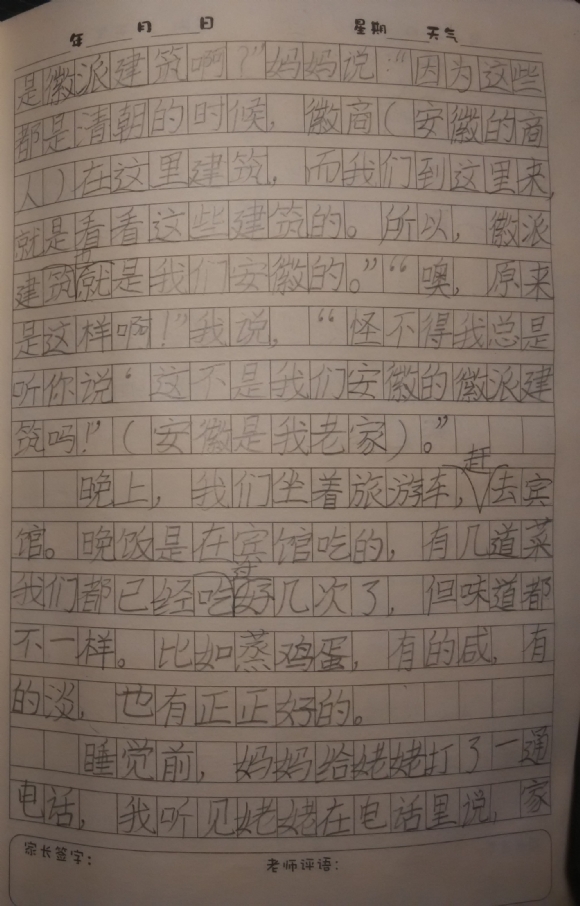 年 月 日 星期 天气
是徽派建筑啊？”妈妈说：“因为这些
都是清朝的时候，徽商（安徽的商
人）在这里建筑，而我们到这里来，
就是看看这些建筑的。所以，徽派
建筑就是我们安徽的。”“噢，原来
是这样啊！”我说，“怪不得我总是
听你说‘这不是我们安徽的徽派建
筑吗！’（安徽是我老家）。”
赶
晚上，我们坐着旅游车，去宾
馆。晚饭是在宾馆吃的，有几道菜
我们都已经吃好几次了，但味道都
不一样。比如蒸鸡蛋，有的咸，有
的淡，也有正正好的。
睡觉前，妈妈给姥姥打了一通
电话，我听见姥姥在电话里说，家
家长签字：
老师评语：